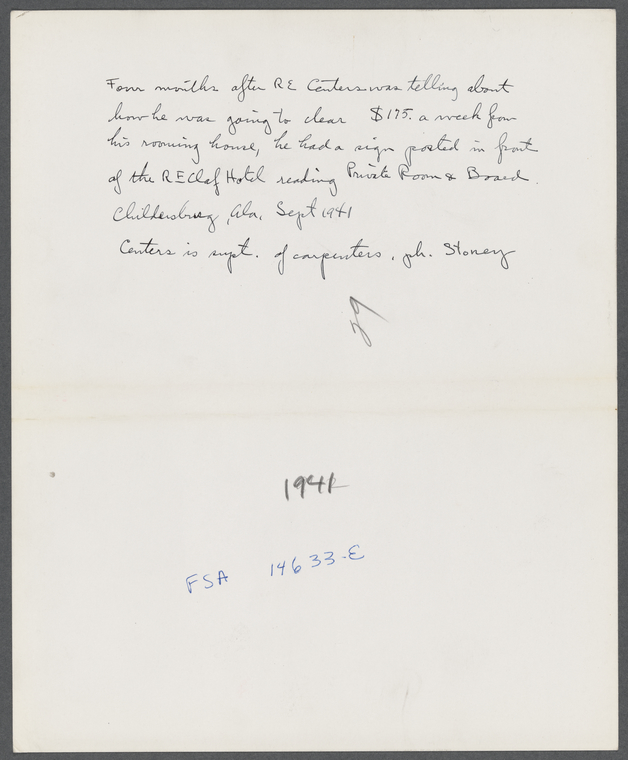 Four months after RE Centers was telling about
how he was going to clear $175. a week from
his rooming house, he had a sign posted in front
of the REClef Hotel reading Private Room & Board.
Childersburg, Ala, Sept 1941
Centers is supt. of carpenters, ph. Stoney
1941
FSA 14633-E